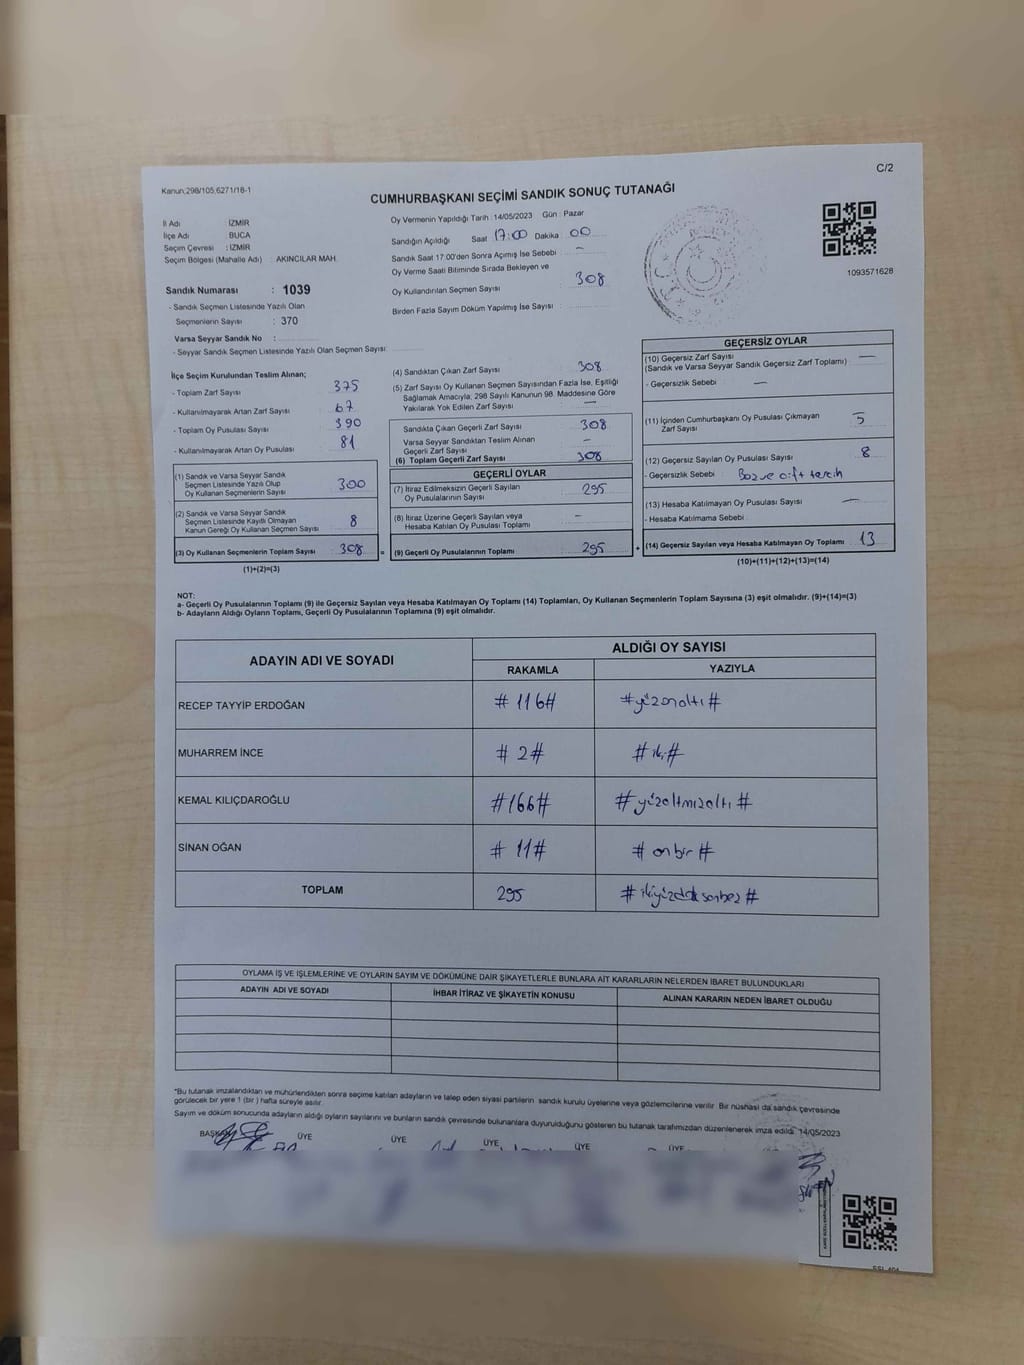 C/2
Kanun;298/105;6271/18-1
CUMHURBAŞKANI SEÇİMİ SANDIK SONUÇ TUTANAĞI
İl Adı : İZMİR
İlçe Adı : BUCA
Seçim Çevresi : İZMİR
Seçim Bölgesi (Mahalle Adı) : AKINCILAR MAH.
Sandık Numarası : 1039
- Sandık Seçmen Listesinde Yazılı Olan
Seçmenlerin Sayısı : 370
Varsa Seyyar Sandık No :
- Seyyar Sandık Seçmen Listesinde Yazılı Olan Seçmen Sayısı:
Oy Vermenin Yapıldığı Tarih : 14/05/2023 Gün : Pazar
Sandığın Açıldığı Saat 17:00 Dakika 00
Sandık Saat 17:00'den Sonra Açımış İse Sebebi : -
Oy Verme Saati Bitiminde Sırada Bekleyen ve
Oy Kullandırılan Seçmen Sayısı : 308
Birden Fazla Sayım Döküm Yapılmış İse Sayısı :
1093571628
İlçe Seçim Kurulundan Teslim Alınan;
- Toplam Zarf Sayısı : 375
- Kullanılmayarak Artan Zarf Sayısı : 67
- Toplam Oy Pusulası Sayısı : 390
- Kullanılmayarak Artan Oy Pusulası : 81
(1) Sandık ve Varsa Seyyar Sandık
Seçmen Listesinde Yazılı Olup
Oy Kullanan Seçmenlerin Sayısı : 300
(2) Sandık ve Varsa Seyyar Sandık
Seçmen Listesinde Kayıtlı Olmayan
Kanun Gereği Oy Kullanan Seçmen Sayısı : 8
(3) Oy Kullanan Seçmenlerin Toplam Sayısı : 308
(1)+(2)=(3)
(4) Sandıktan Çıkan Zarf Sayısı : 308
(5) Zarf Sayısı Oy Kullanan Seçmen Sayısından Fazla İse, Eşitliği
Sağlamak Amacıyla, 298 Sayılı Kanunun 98. Maddesine Göre
Yakılarak Yok Edilen Zarf Sayısı : —
Sandıkta Çıkan Geçerli Zarf Sayısı : 308
Varsa Seyyar Sandıktan Teslim Alınan
Geçerli Zarf Sayısı : -
(6) Toplam Geçerli Zarf Sayısı : 308
GEÇERLİ OYLAR
(7) İtiraz Edilmeksizin Geçerli Sayılan
Oy Pusulalarının Sayısı : 295
(8) İtiraz Üzerine Geçerli Sayılan veya
Hesaba Katılan Oy Pusulası Toplamı : -
(9) Geçerli Oy Pusulalarının Toplamı : 295
GEÇERSİZ OYLAR
(10) Geçersiz Zarf Sayısı : —
(Sandık ve Varsa Seyyar Sandık Geçersiz Zarf Toplamı)
- Geçersizlik Sebebi : —
(11) İçinden Cumhurbaşkanı Oy Pusulası Çıkmayan
Zarf Sayısı : 5
(12) Geçersiz Sayılan Oy Pusulası Sayısı : 8
- Geçersizlik Sebebi : Boş ve çift tercih
(13) Hesaba Katılmayan Oy Pusulası Sayısı : —
- Hesaba Katılmama Sebebi :
(14) Geçersiz Sayılan veya Hesaba Katılmayan Oy Toplamı : 13
(10)+(11)+(12)+(13)=(14)
NOT:
a- Geçerli Oy Pusulalarının Toplamı (9) ile Geçersiz Sayılan veya Hesaba Katılmayan Oy Toplamı (14) Toplamları, Oy Kullanan Seçmenlerin Toplam Sayısına (3) eşit olmalıdır. (9)+(14)=(3)
b- Adayların Aldığı Oyların Toplamı, Geçerli Oy Pusulalarının Toplamına (9) eşit olmalıdır.
ADAYIN ADI VE SOYADI ALDIĞI OY SAYISI
RAKAMLA YAZIYLA
RECEP TAYYİP ERDOĞAN #116# #yüzonaltı#
MUHARREM İNCE #2# #iki#
KEMAL KILIÇDAROĞLU #166# #yüzaltmışaltı#
SİNAN OĞAN #11# #onbir#
TOPLAM 295 #ikiyüzdoksanbeş#
OYLAMA İŞ VE İŞLEMLERİNE VE OYLARIN SAYIM VE DÖKÜMÜNE DAİR ŞİKAYETLERLE BUNLARA AİT KARARLARIN NELERDEN İBARET BULUNDUKLARI
ADAYIN ADI VE SOYADI İHBAR İTİRAZ VE ŞİKAYETİN KONUSU ALINAN KARARIN NEDEN İBARET OLDUĞU
*Bu tutanak imzalandıktan ve mühürlendikten sonra seçime katılan adayların ve talep eden siyasi partilerin sandık kurulu üyelerine veya gözlemcilerine verilir. Bir nüshası da sandık çevresinde
görülecek bir yere 1 (bir) hafta süreyle asılır.
Sayım ve döküm sonucunda adayların aldığı oyların sayılarını ve bunların sandık çevresinde bulunanlara duyurulduğunu gösteren bu tutanak tarafımızdan düzenlenerek imza edildi. 14/05/2023
BAŞKAN ÜYE ÜYE ÜYE ÜYE ÜYE